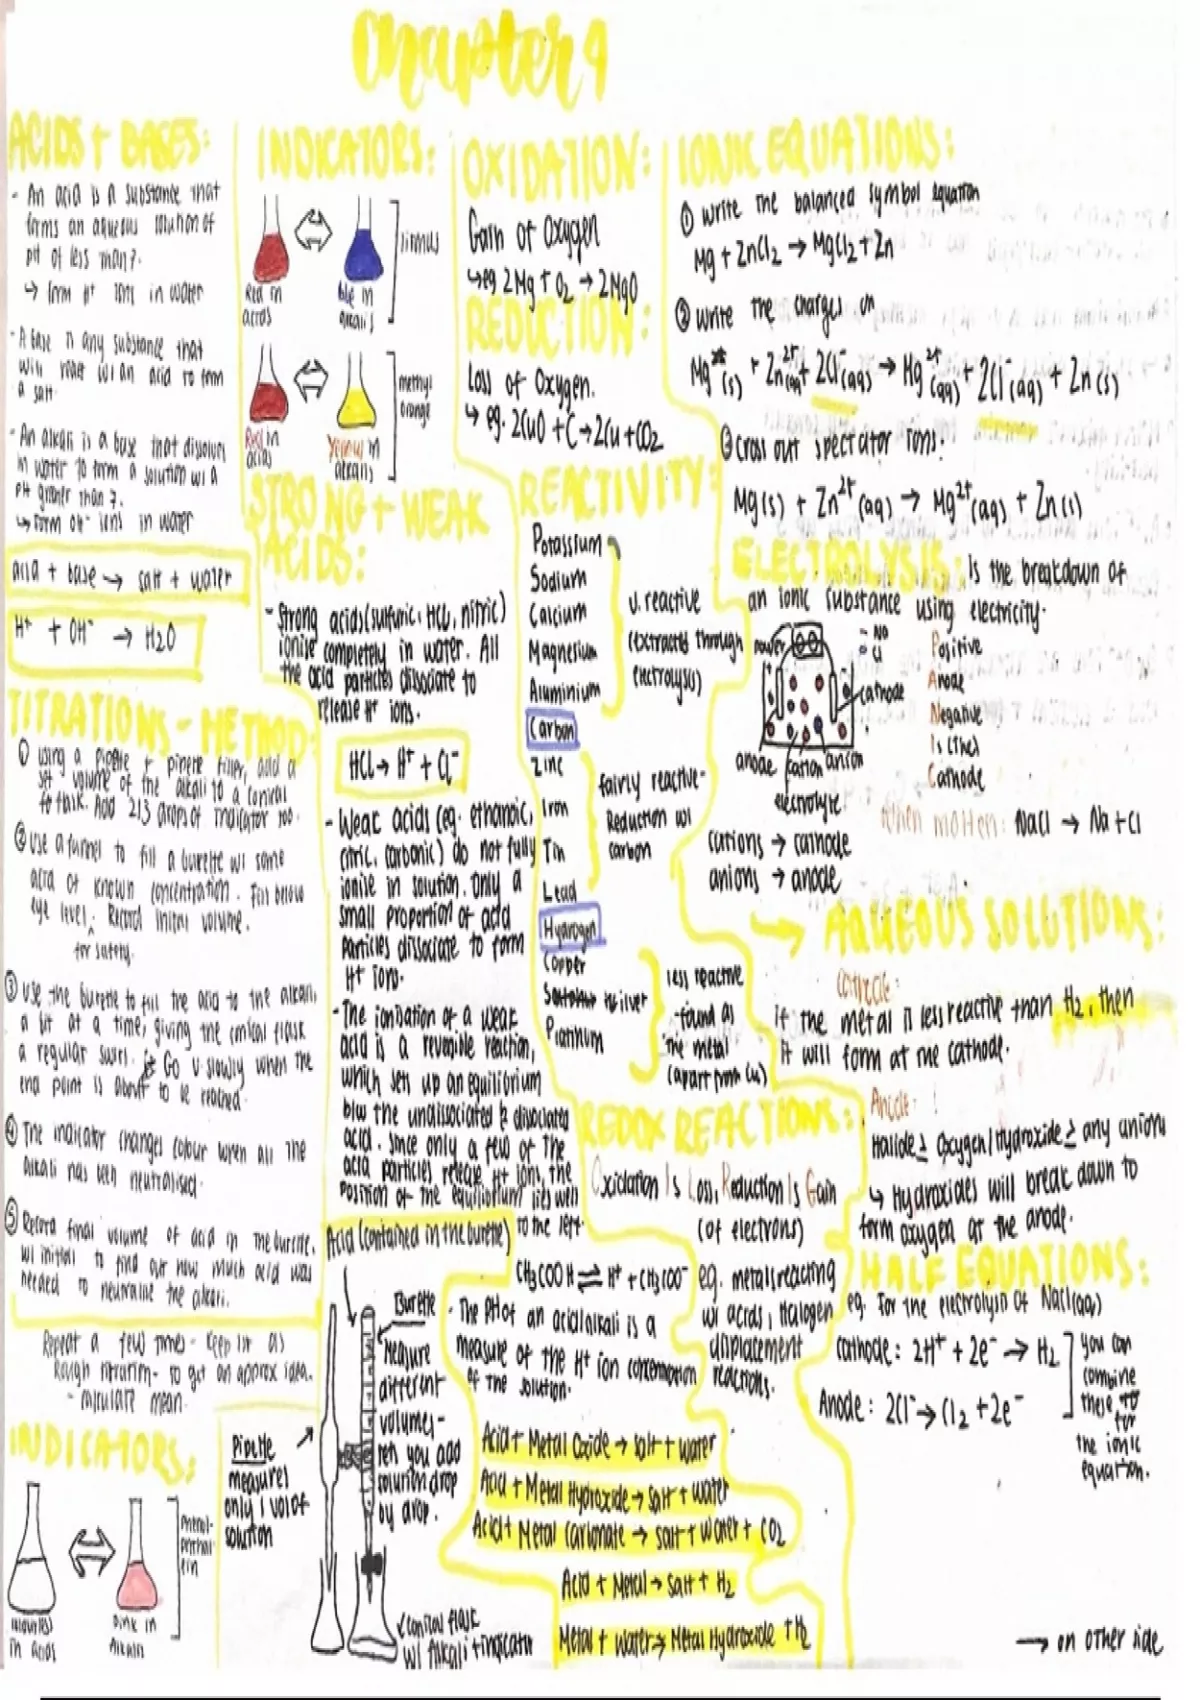 Chapter 4
ACIDS + BASES:
- An acid is a substance that
forms an aqueous solution of
pH of less than 7.
↳ form H⁺ ions in water
- A base is any substance that
will react w/ an acid to form
a salt.
- An alkali is a base that dissolves
in water to form a solution w/ a
pH greater than 7.
↳ form OH⁻ ions in water
acid + base → salt + water
H⁺ + OH⁻ → H2O
TITRATIONS - METHOD:
① using a pipette + pipette filler, add a
set volume of the alkali to a conical
flask. Add 2/3 drops of indicator too.
② Use a funnel to fill a burette w/ some
acid of known concentration. Fill below
eye level. Record initial volume.
for safety.
③ Use the burette to fill the acid to the alkali,
a bit at a time, giving the conical flask
a regular swirl. Go v slowly when the
end point is about to be reached.
④ The indicator changes colour when all the
alkali has been neutralised.
⑤ Record final volume of acid in the burette,
w/ initial to find out how much acid was
needed to neutralise the alkali.
Repeat a few times - keep 1st as
rough titration - to get an approx idea.
- calculate mean.
INDICATORS:
colourless
in acids
pink in
alkalis
phenol-
phthal-
ein
INDICATORS:
Red in
acids
Blue in
alkalis
litmus
Red in
acids
Yellow in
alkalis
methyl
orange
STRONG + WEAK
ACIDS:
- Strong acids (sulfuric, HCl, nitric)
ionise completely in water. All
the acid particles dissociate to
release H⁺ ions.
HCl → H⁺ + Cl⁻
- Weak acids (eg. ethanoic,
citric, carbonic) do not fully
ionise in solution. Only a
small proportion of acid
particles dissociate to form
H⁺ ions.
- The ionisation of a weak
acid is a reversible reaction,
which sets up an equilibrium
b/w the undissociated & dissociated
acid. Since only a few of the
acid particles release H⁺ ions, the
position of the equilibrium lies well
to the left.
CH3COOH ⇌ H⁺ + CH3COO⁻
- The pH of an acid/alkali is a
measure of the H⁺ ion concentration
of the solution.
Acid (contained in the burette)
Burette
measure
different
volumes -
let you add
solution drop
by drop.
Pipette
measures
only 1 vol of
solution
conical flask
w/ Alkali + indicator
Acid + Metal Oxide → salt + water
Acid + Metal Hydroxide → salt + water
Acid + Metal Carbonate → salt + water + CO2
Acid + Metal → Salt + H2
Metal + water → Metal Hydroxide + H2
OXIDATION:
Gain of Oxygen
↳ eg 2Mg + O2 → 2MgO
REDUCTION:
Loss of Oxygen.
↳ eg. 2CuO + C → 2Cu + CO2
REACTIVITY:
Potassium
Sodium
Calcium
Magnesium
Aluminium
Carbon
Zinc
Iron
Tin
Lead
Hydrogen
Copper
silver
Platinum
v. reactive
(extracted through
electrolysis)
fairly reactive -
Reduction w/
carbon
less reactive
- found as
the metal
(apart from Cu)
REDOX REACTIONS:
Oxidation Is Loss, Reduction Is Gain
(of electrons)
eg. metal reacting
w/ acids, Halogen
displacement
reactions.
IONIC EQUATIONS:
① Write the balanced symbol equation
Mg + ZnCl2 → MgCl2 + Zn
② Write the charges on
Mg(s) + Zn²⁺(aq) + 2Cl⁻(aq) → Mg²⁺(aq) + 2Cl⁻(aq) + Zn(s)
③ Cross out spectator ions:
Mg(s) + Zn²⁺(aq) → Mg²⁺(aq) + Zn(s)
ELECTROLYSIS: Is the breakdown of
an ionic substance using electricity.
power
- Na
Cl
cathode
anode cation anion
electrolyte
Positive
Anode
Negative
Is (the)
Cathode
When molten: NaCl → Na + Cl
cations → cathode
anions → anode
→ AQUEOUS SOLUTIONS:
Cathode:
If the metal is less reactive than H2, then
it will form at the cathode.
Anode:
Halide ≥ Oxygen/Hydroxide ≥ any anions
↳ Hydroxides will break down to
form oxygen at the anode.
HALF EQUATIONS:
eg. For the electrolysis of NaCl(aq)
Cathode: 2H⁺ + 2e⁻ → H2
Anode: 2Cl⁻ → Cl2 + 2e⁻
you can
combine
these to
for
the ionic
equation.
→ on other side